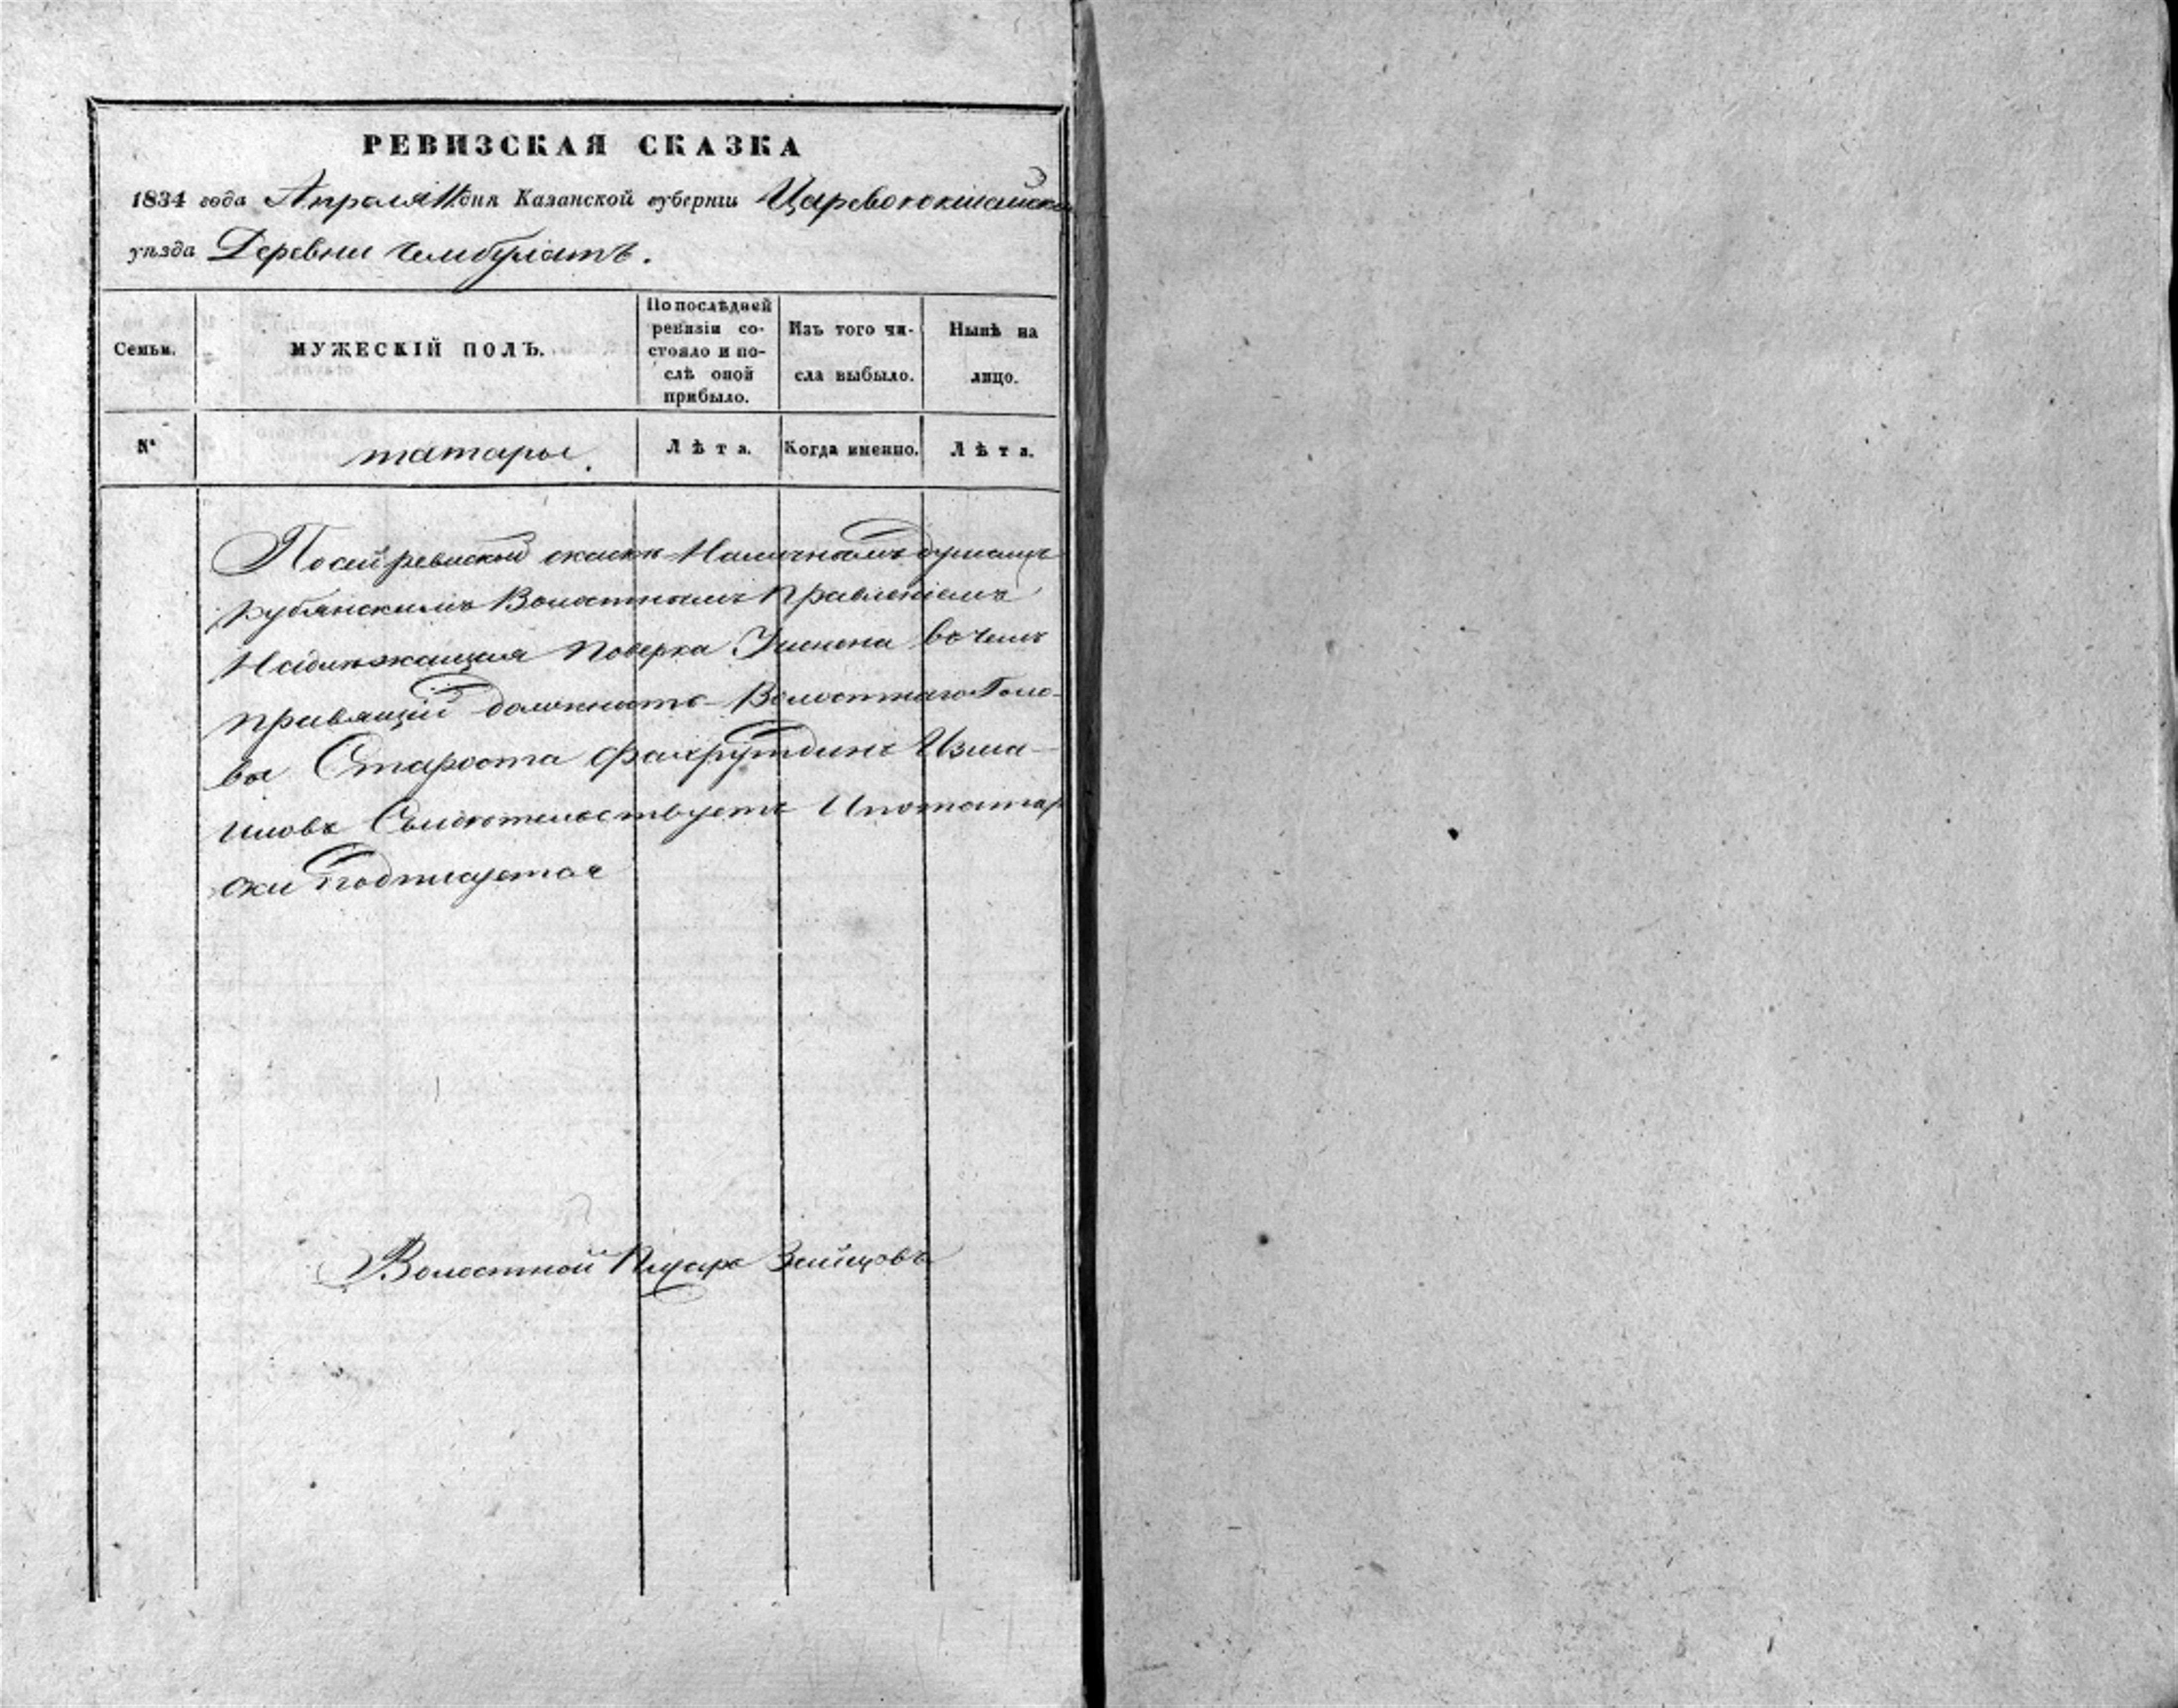 РЕВИЗСКАЯ СКАЗКА
1834 года Апреля дня Казанской губерніи Царевококшайской
уѣзда Деревни Чембулатъ.
Семьи.
МУЖЕСКІЙ ПОЛЪ.
По послѣдней
ревизіи со-
стояло и по-
слѣ оной
прибыло.
Изъ того чи-
сла выбыло.
Нынѣ на
лицо.
№
татары.
Лѣта.
Когда именно.
Лѣта.
По сей ревиской скаске Наличнымъ душамъ
Кубянскимъ Волостнымъ Правленіемъ
Надлежащая поверка Учинена в чемъ
правящій должность Волостнаго Голо-
вы Староста Фахрутдинъ Изма-
иловъ Свидетельствуетъ И потатар
ски подписуетса
Волостной Писарь Зайцовъ